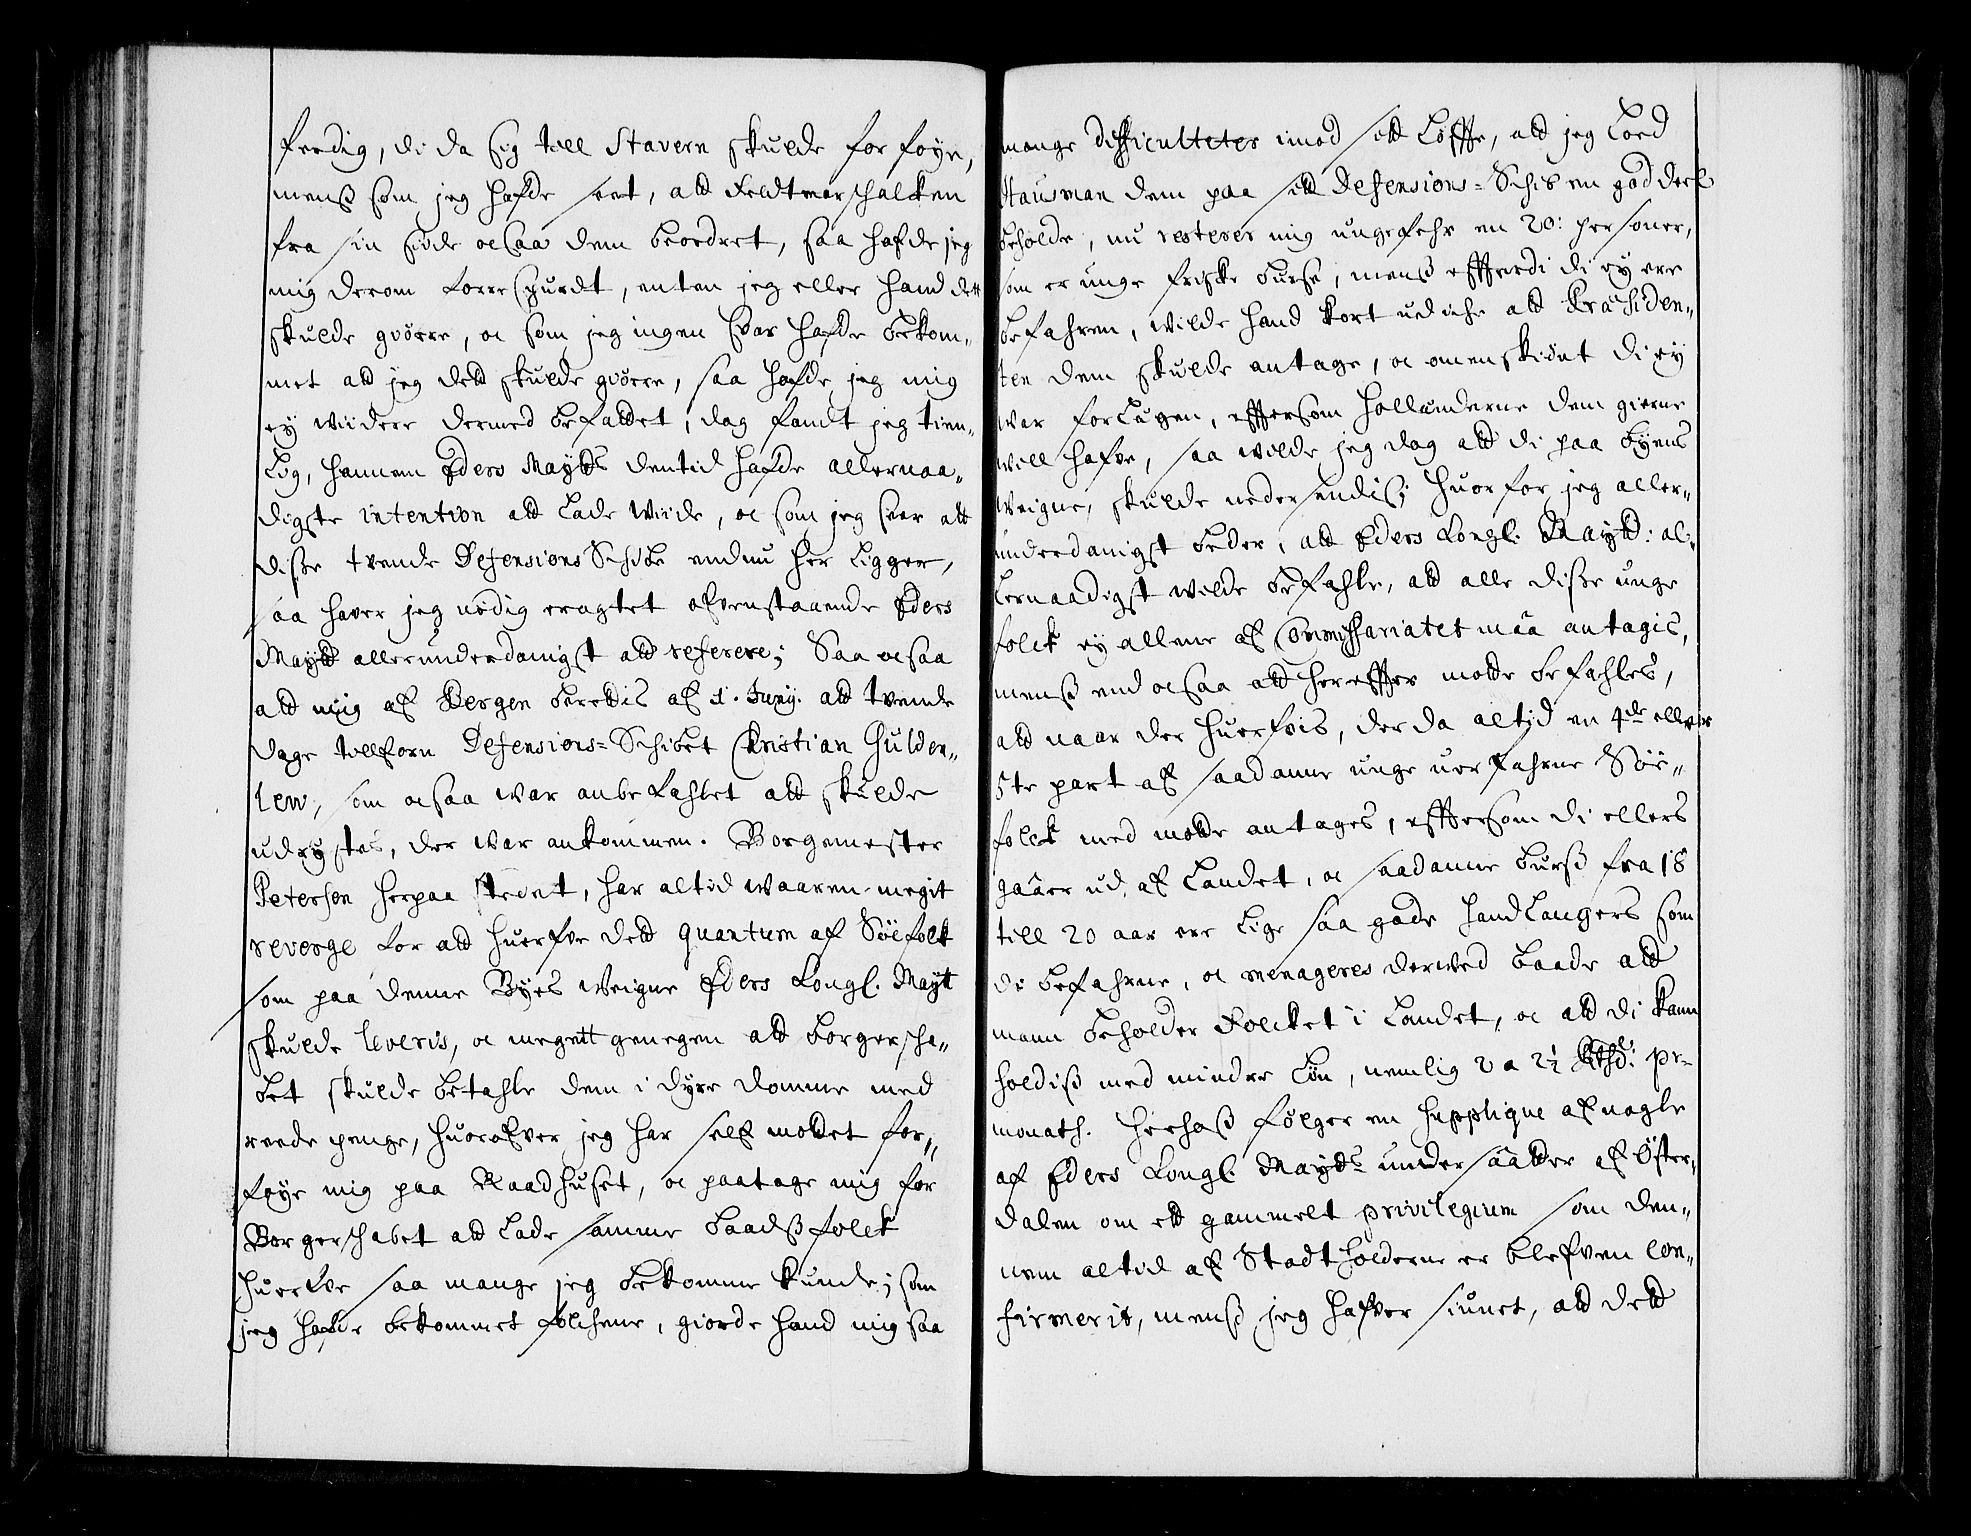 ferdig, di da sig till Stavern skulde forføye,
menß som jeg hafde seet, att Feldtmarschalcken
fra sin side ocsaa dem beordret, saa hafde jeg
mig derom forrespurdt, enten jeg eller hand dett
skulde giöre, oc som jeg ingen svar hafde bekom,,
met att jeg dett skulde giöre, saa hafde jeg mig
ey widere dermed befattet, dog fandt jeg tien,,
lig, hannem Eders Maytts dentid hafde allernaa,,
digste intention att lade wiide, oc som jeg seer att
disse tvende Defensions Schibe endnu her ligger,
saa haver jeg nödig eragtet ofvenstaaende Eders
Maytt allerunderdanigst att referere; Saa ocsaa
att mig af Bergen berettis af 1. Junij. att tvende
dage tillforn Defensions-Schibet Christian Gulden,,
lew, som ocsaa war anbefahlet att skulde
udrystes, der war ankommen. Borgemester
Petersen herpaa stedet, har altid waaren megit
reverge for att huerfve dett quantum af Söefolk
som paa denne Byes weigne Eders Kongl. Maytt
skulde leveris, oc megett genegen att borgerscha,,
bet skulde betahle dem i dyre domme med
reede penge, huorofver jeg har self mottet for,,
føye mig paa Raadhuset, oc paatage mig for
Borgerschabet att lade samme baadßfolck
huerfve saa mange jeg bekomme kunde; som
jeg hafde bekommet folchene, giorde hand mig saa
mange difficulteter imod sitt løffte, att jeg loed
Hausman dem paa sitt Defensions-Schib en god deel
beholde, nu resterer mig ungefehr en 20: personer,
som er unge friske burse, menß efftterdi di ey ere
befahren, wilde hand kort udiche att Præsiden,,
ten dem skulde antage, oc omenskiönt di ey
war forlagen, efftersom Hollenderne dem gierne
will hafve, saa wilde jeg dog att di paa byens
weigne, skulde nedersendis; huorfor jeg aller,,
underdanigst beder, att Eders Kongl. Maytt: al,,
lernaadigst wilde befahle, att alle disse unge
folck ey allene af Commissariatet maa antagis,
menß end ocsaa att herefter motte befahles,
att naar der huerfvis, der da altid en 4de eller
5te part af saadanne unge uerfahrne Söe,,
folck med motte antages, efftersom di ellers
gaaer ud af Landet, oc saadanne burß fra 18
till 20 aar ere lige saa gode handlangers som
di befahrne, oc menageres derved baade att
mann beholder Folcket i Landet, oc att di kann
holdiß med mindre lön, nemlig 2 a 2½ Rthd: pr-
monath. Herhoß fölger en supplique af nogle
af Eders Kongl. Maytts undersaatter af Öster,,
dalen om ett gammelt privilegium som den,,
nem altid af Stadtholderne er blefven con,,
firmerit, menß jeg hafver siunet, att dett